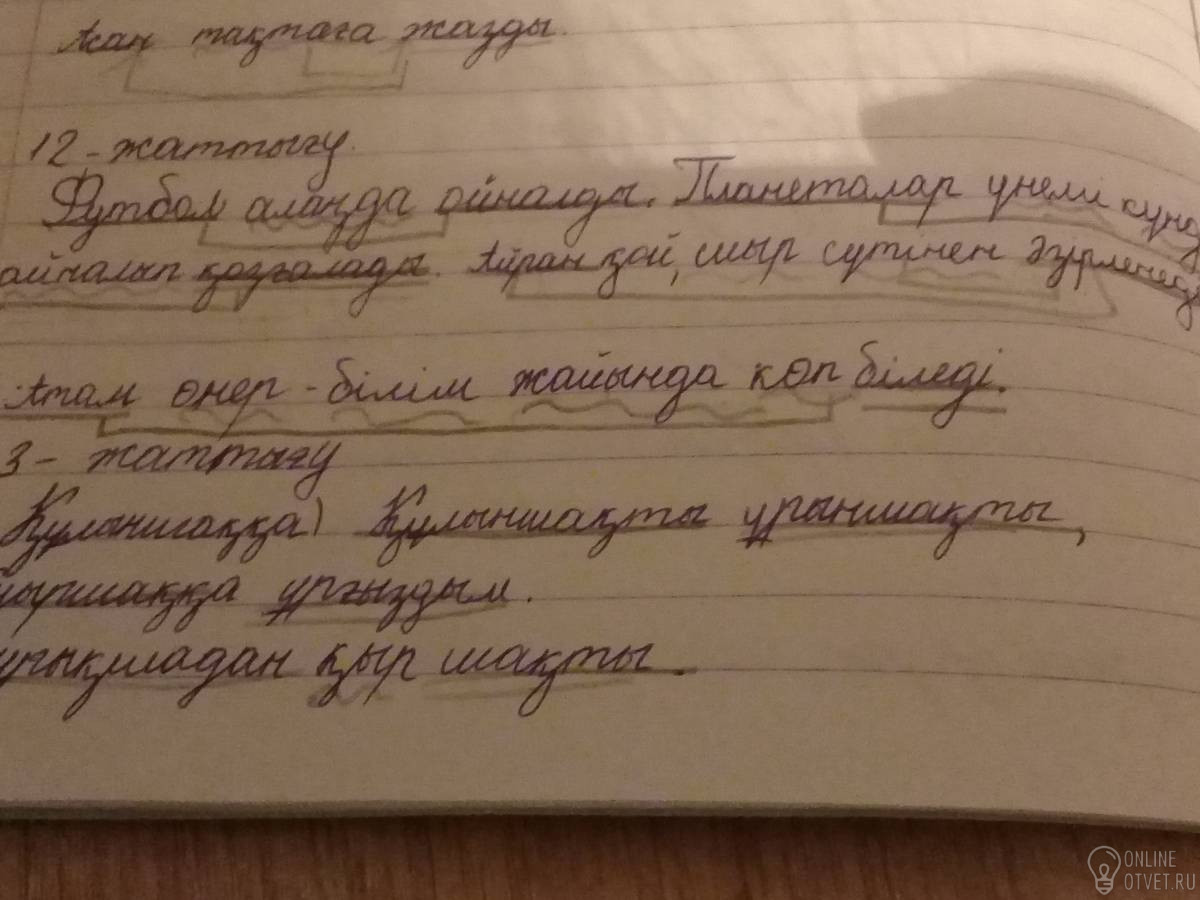 Асан тақтаға жазды.
12 - жаттығу.
Футбол алаңда ойналды. Планеталар үнемі күнді
айналып қозғалады. Айран қой, сиыр сүтінен әзірленеді
Атам өнер - білім жайында көп біледі.
3 - жаттығу
Құлыншаққа) Құлыншақты ұрыншақты,
ұрғыздым.
қыр шақты.
ONLINE
OTVET.RU